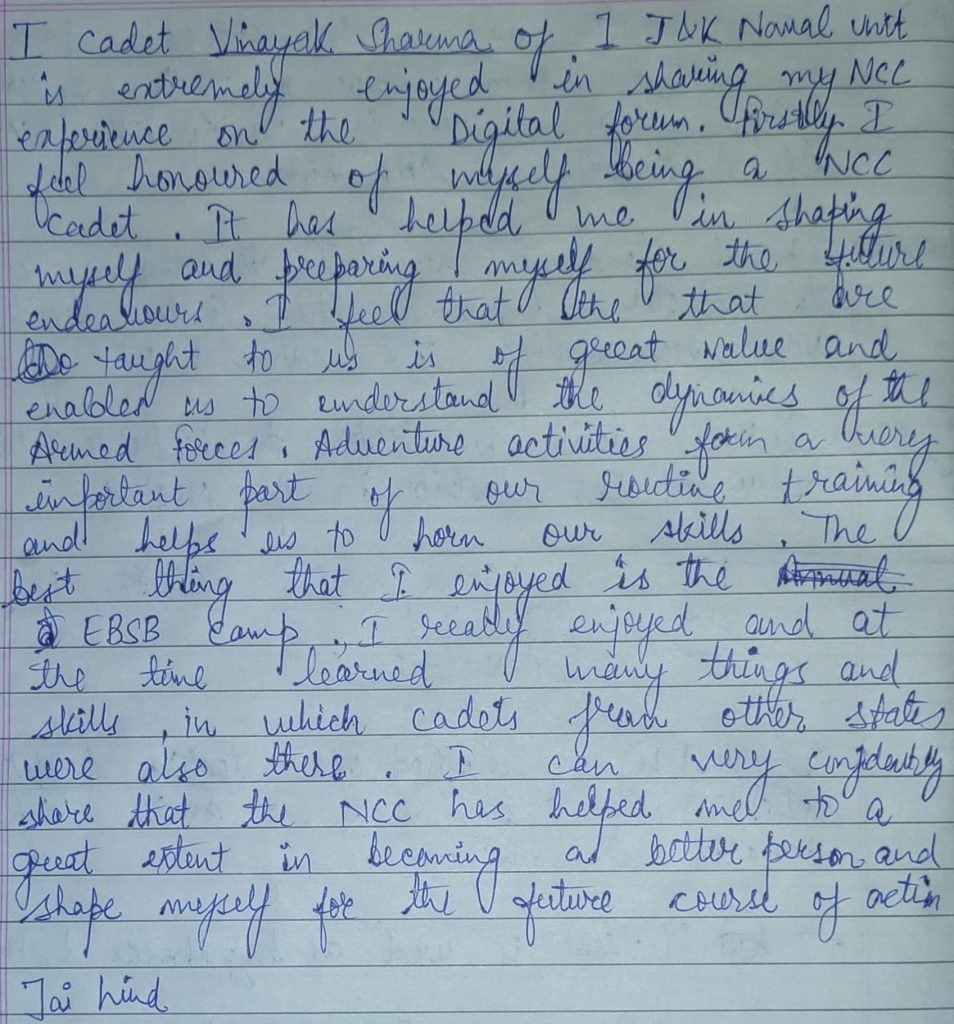 I cadet Vinayak Sharma of 1 J&K Naval unit
is extremely enjoyed in sharing my NCC
experience on the Digital forum. Firstly I
feel honoured of myself being a NCC
Cadet. It has helped me in shaping
myself and preparing myself for the future
endeavours. I feel that the that are
taught to us is of great value and
enables us to understand the dynamics of the
Armed forces. Adventure activities form a very
important part of our routine training
and helps us to horn our skills. The
best thing that I enjoyed is the Annual
EBSB Camp. I really enjoyed and at
the time learned many things and
skills, in which cadets from other states
were also there. I can very confidently
share that the NCC has helped me to a
great extent in becoming a better person and
shape myself for the future course of actin
Jai hind